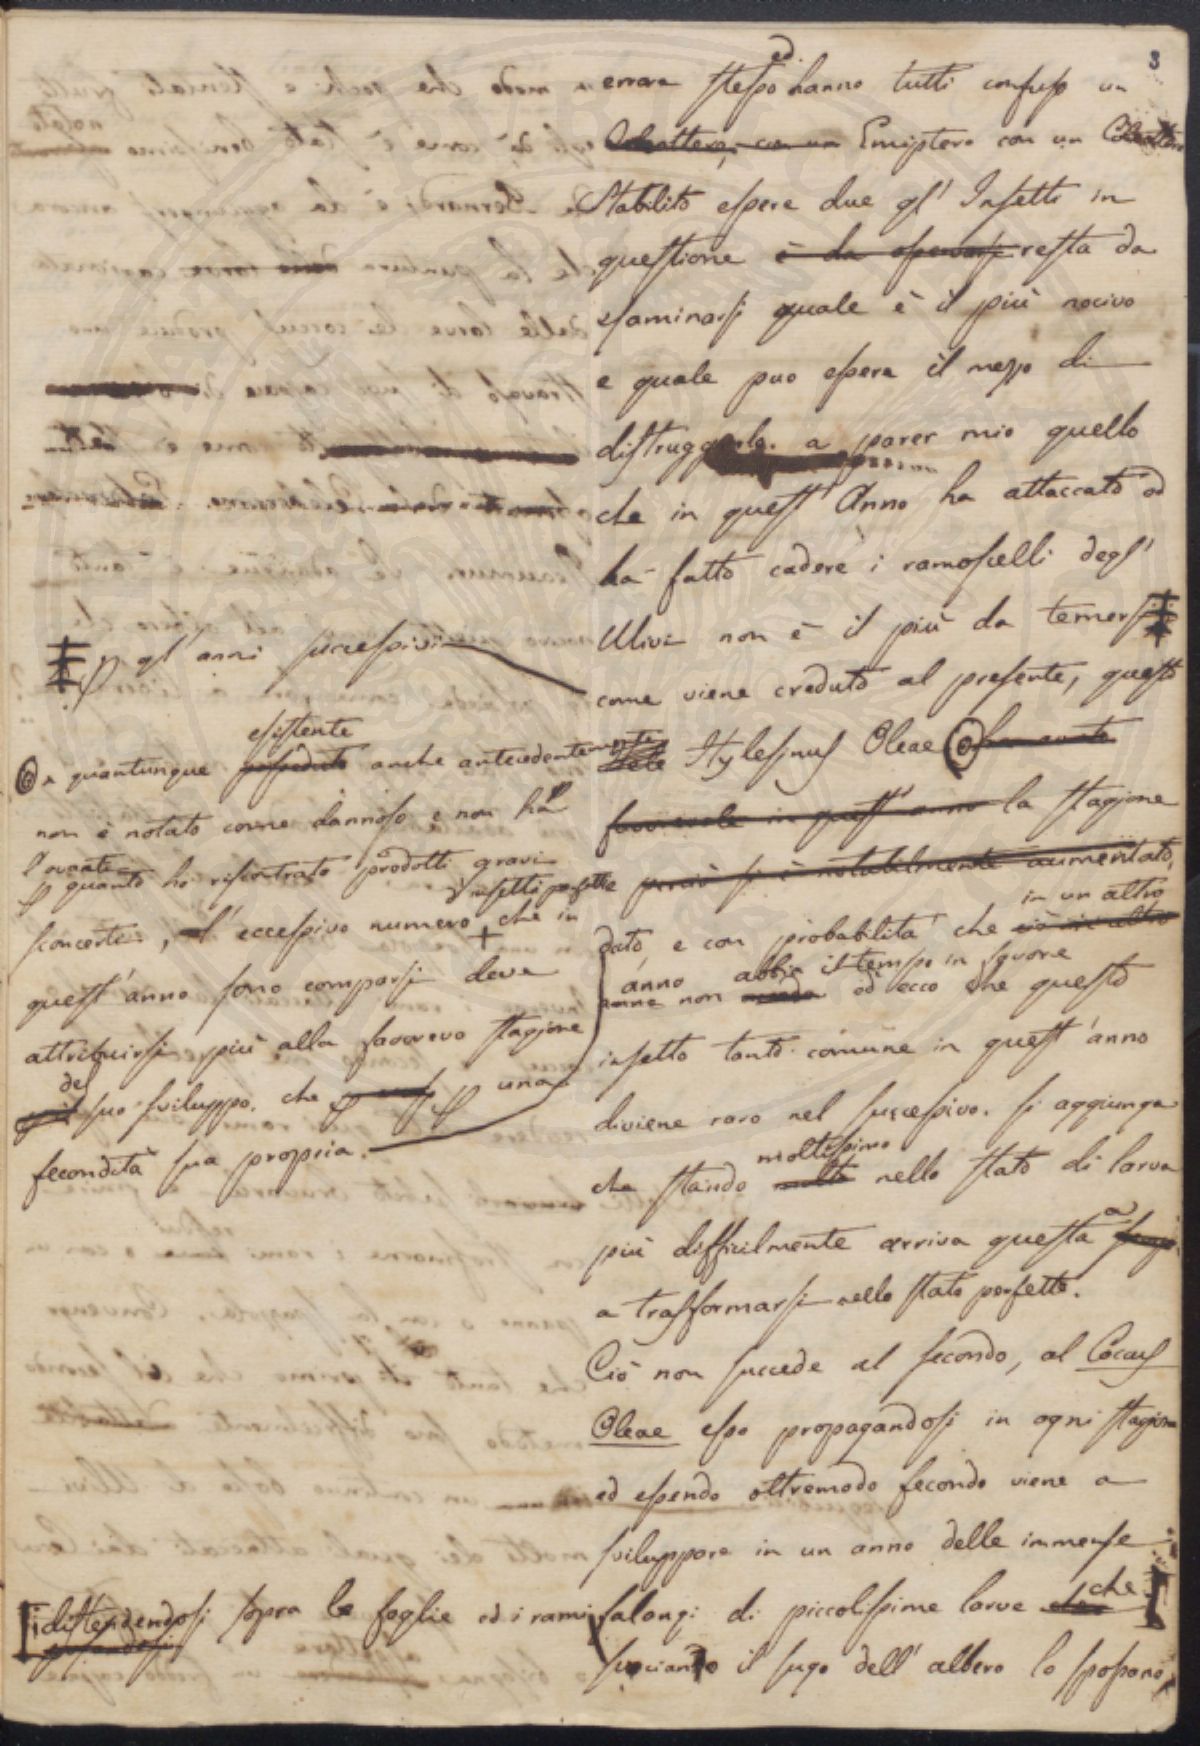 3
errore stesso ed hanno tutti confuso un
Coleottero, con un Emiptero con un Coleottero
Stabilito essere due gl' Insetti in
questione è da osservarsi resta da
esaminarsi quale è il più nocivo
e quale puo essere il mezzo di
distruggerlo. a parer mio quello
che in quest' Anno ha attaccato ed
ha fatto cadere i ramoscelli degl'
Ulivi non è il più da temersi
come viene creduto al presente, questo
Hylesinus Oleae
favorevole in quest' anno la stagione
perciò si è notabilmente aumentato,
in un altro
dato, e con probabilita che ciò in altro
anno abbia il tempo in favore
anno non ed ecco che questo
insetto tanto comune in quest' anno
diviene raro nel successivo. si aggiunga
moltissimo
che stando molto nello stato di larva
più difficilmente arriva questa
a trasformarsi nello stato perfetto.
Ciò non succede al secondo, al Cocus
Oleae esso propagandosi in ogni stagione
ed essendo oltremodo fecondo viene a
sviluppare in un anno delle immense
falangi di piccolissime larve che
succiando il sugo dell' albero lo spossano
p gl' anni successivi
esistente
e quantunque anche antecedentemente
non è notato come dannoso e non ha
p quanto ho riscontrato prodotti gravi
d'insetti perfetti
sconcerti, l' eccessivo numero + che in
quest' anno sono comparsi deve
attribuirsi più alla favorevo stagione
del
suo sviluppo. che p una
fecondità sua propria.
distendendosi sopra le foglie ed i rami